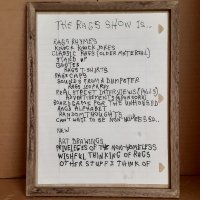 THE RAGS SHOW IS...
RAGS RHYMES
KNOCK KNOCK JOKES
CLASSIC RAGS (OLDER MATERIAL)
STAND UP
QUOTES
RAGS T-SHIRTS
RAGS CAPS
SOUNDS FROM A DUMPSTER
RAGS JEOPARDY
REAL STREET INTERVIEWS (VOLS)
ADVERTISEMENTS
BOARD GAME FOR THE UNHOUSED
RAGS ALPHABET
RANDOM THOUGHTS
CAN'T WAIT TO BE NON-HOMELESS..
NEW
ART DRAWINGS
PRIVILEGES OF THE NON-HOMELESS
WISHFUL THINKING OF RAGS
OTHER STUFF I THINK OF